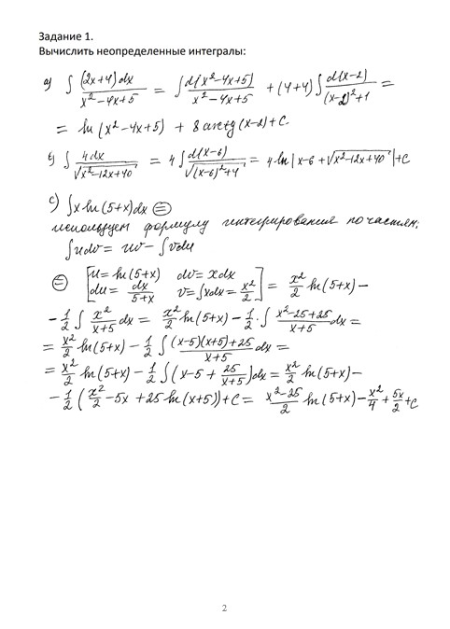 Задание 1.
Вычислить неопределенные интегралы:
a) ∫ (2x+4)dx / (x²-4x+5) = ∫ d(x²-4x+5) / (x²-4x+5) + (4+4) ∫ d(x-2) / ((x-2)²+1) =
= ln(x²-4x+5) + 8 arctg(x-2) + C.
b) ∫ 4dx / √(x²-12x+40) = 4 ∫ d(x-6) / √((x-6)²+4) = 4 ln|x-6+√(x²-12x+40)| + C
c) ∫ x ln(5+x)dx ⊜
используем формулу интегрирования по частям,
∫ u dv = uv - ∫ v du
⊜ [u = ln(5+x) dv = xdx
du = dx/(5+x) v = ∫xdx = x²/2] = x²/2 ln(5+x) -
- 1/2 ∫ x²/(x+5) dx = x²/2 ln(5+x) - 1/2 · ∫ (x²-25+25)/(x+5) dx =
= x²/2 ln(5+x) - 1/2 ∫ ((x-5)(x+5)+25)/(x+5) dx =
= x²/2 ln(5+x) - 1/2 ∫ (x-5 + 25/(x+5)) dx = x²/2 ln(5+x) -
- 1/2 (x²/2 - 5x + 25 ln(x+5)) + C = (x²-25)/2 ln(5+x) - x²/4 + 5x/2 + C
2